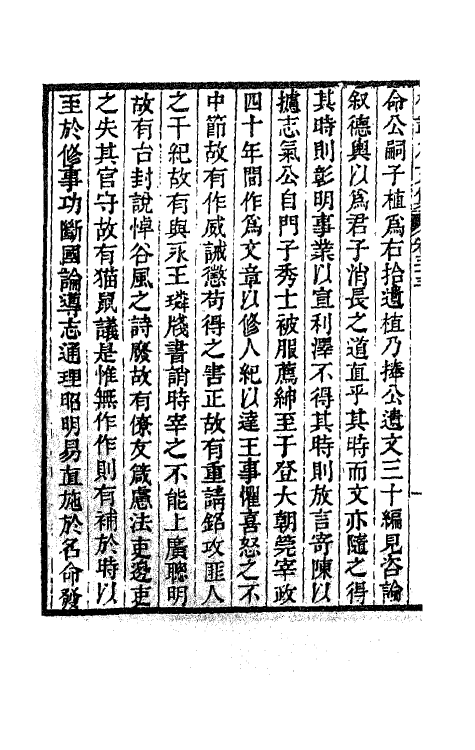 命公嗣子植爲右拾遺植乃捧公遺文三十編見咨論
叙德輿以爲君子消長之道直乎其時而文亦隨之得
其時則彰明事業以宣利澤不得其時則放言寄陳以
攄志氣公自門子秀士被服薦紳至于登大朝筦宰政
四十年間作爲文章以修人紀以達王事懼喜怒之不
中節故有作威誡懲苟得之害正故有重請銘攻匪人
之干紀故有與永王璘牋書誚時宰之不能上廣聰明
故有台封說悼谷風之詩廢故有僚友箴慮法吏邊吏
之失其官守故有猫鼠議是惟無作作則有補於時以
至於修事功斷國論導志通理昭明易直施於名命發